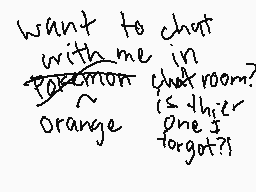 want to chat
with me in
pokemon chatroom?
~
orange
is thier
one I
forgot?!